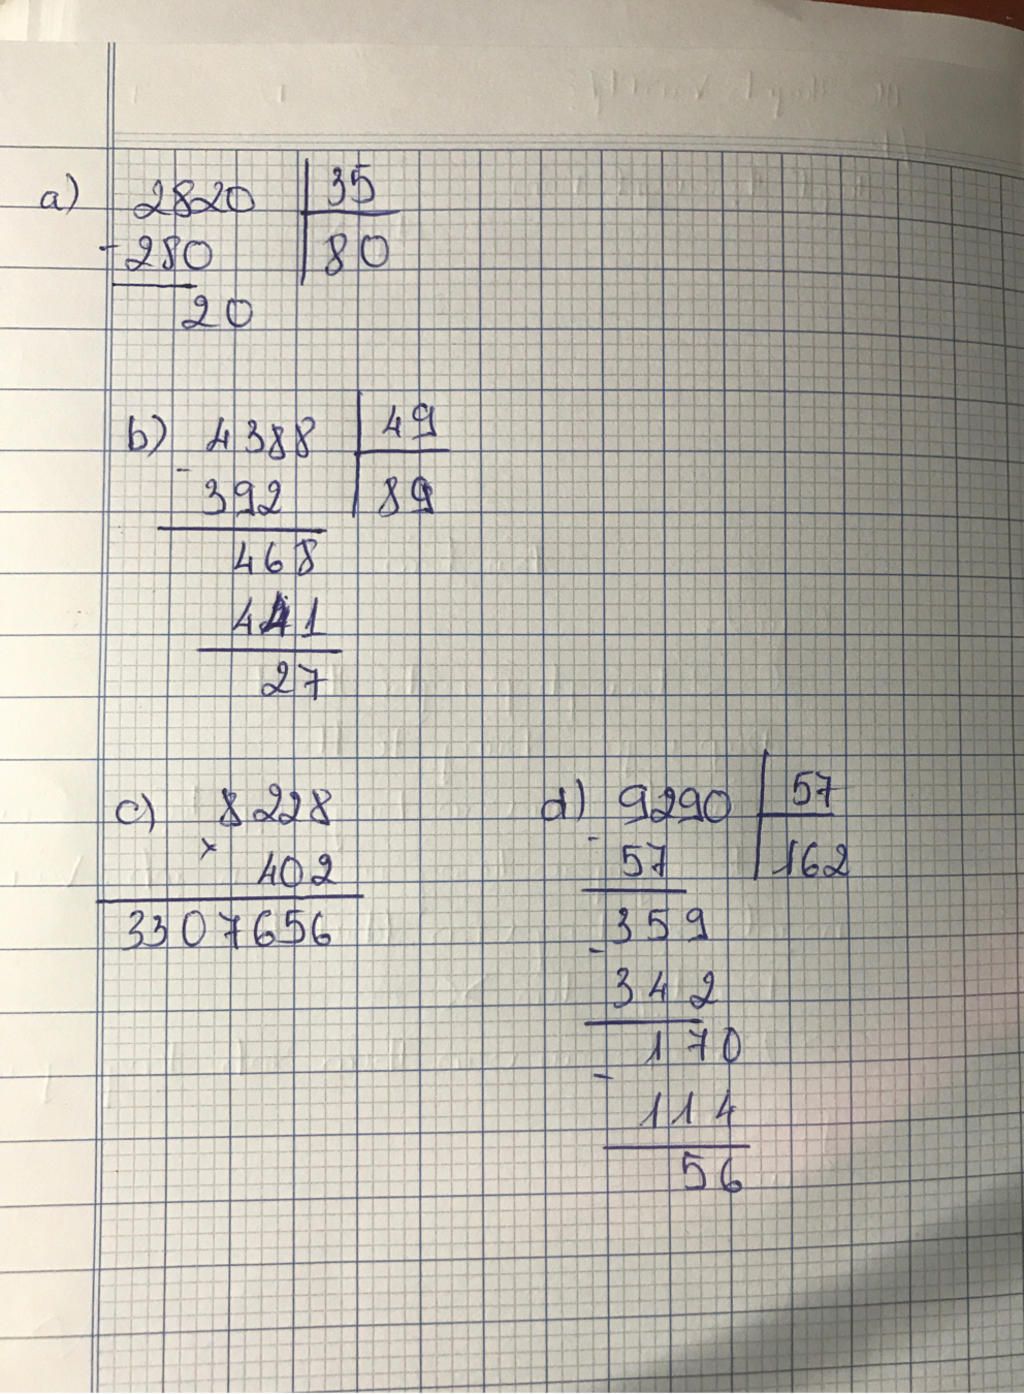 a) 2820 35
- 280 80
20
b) 4388 49
- 392 89
468
441
27
c) 8228
× 402
3307656
d) 9290 57
- 57 162
359
- 342
170
- 114
56